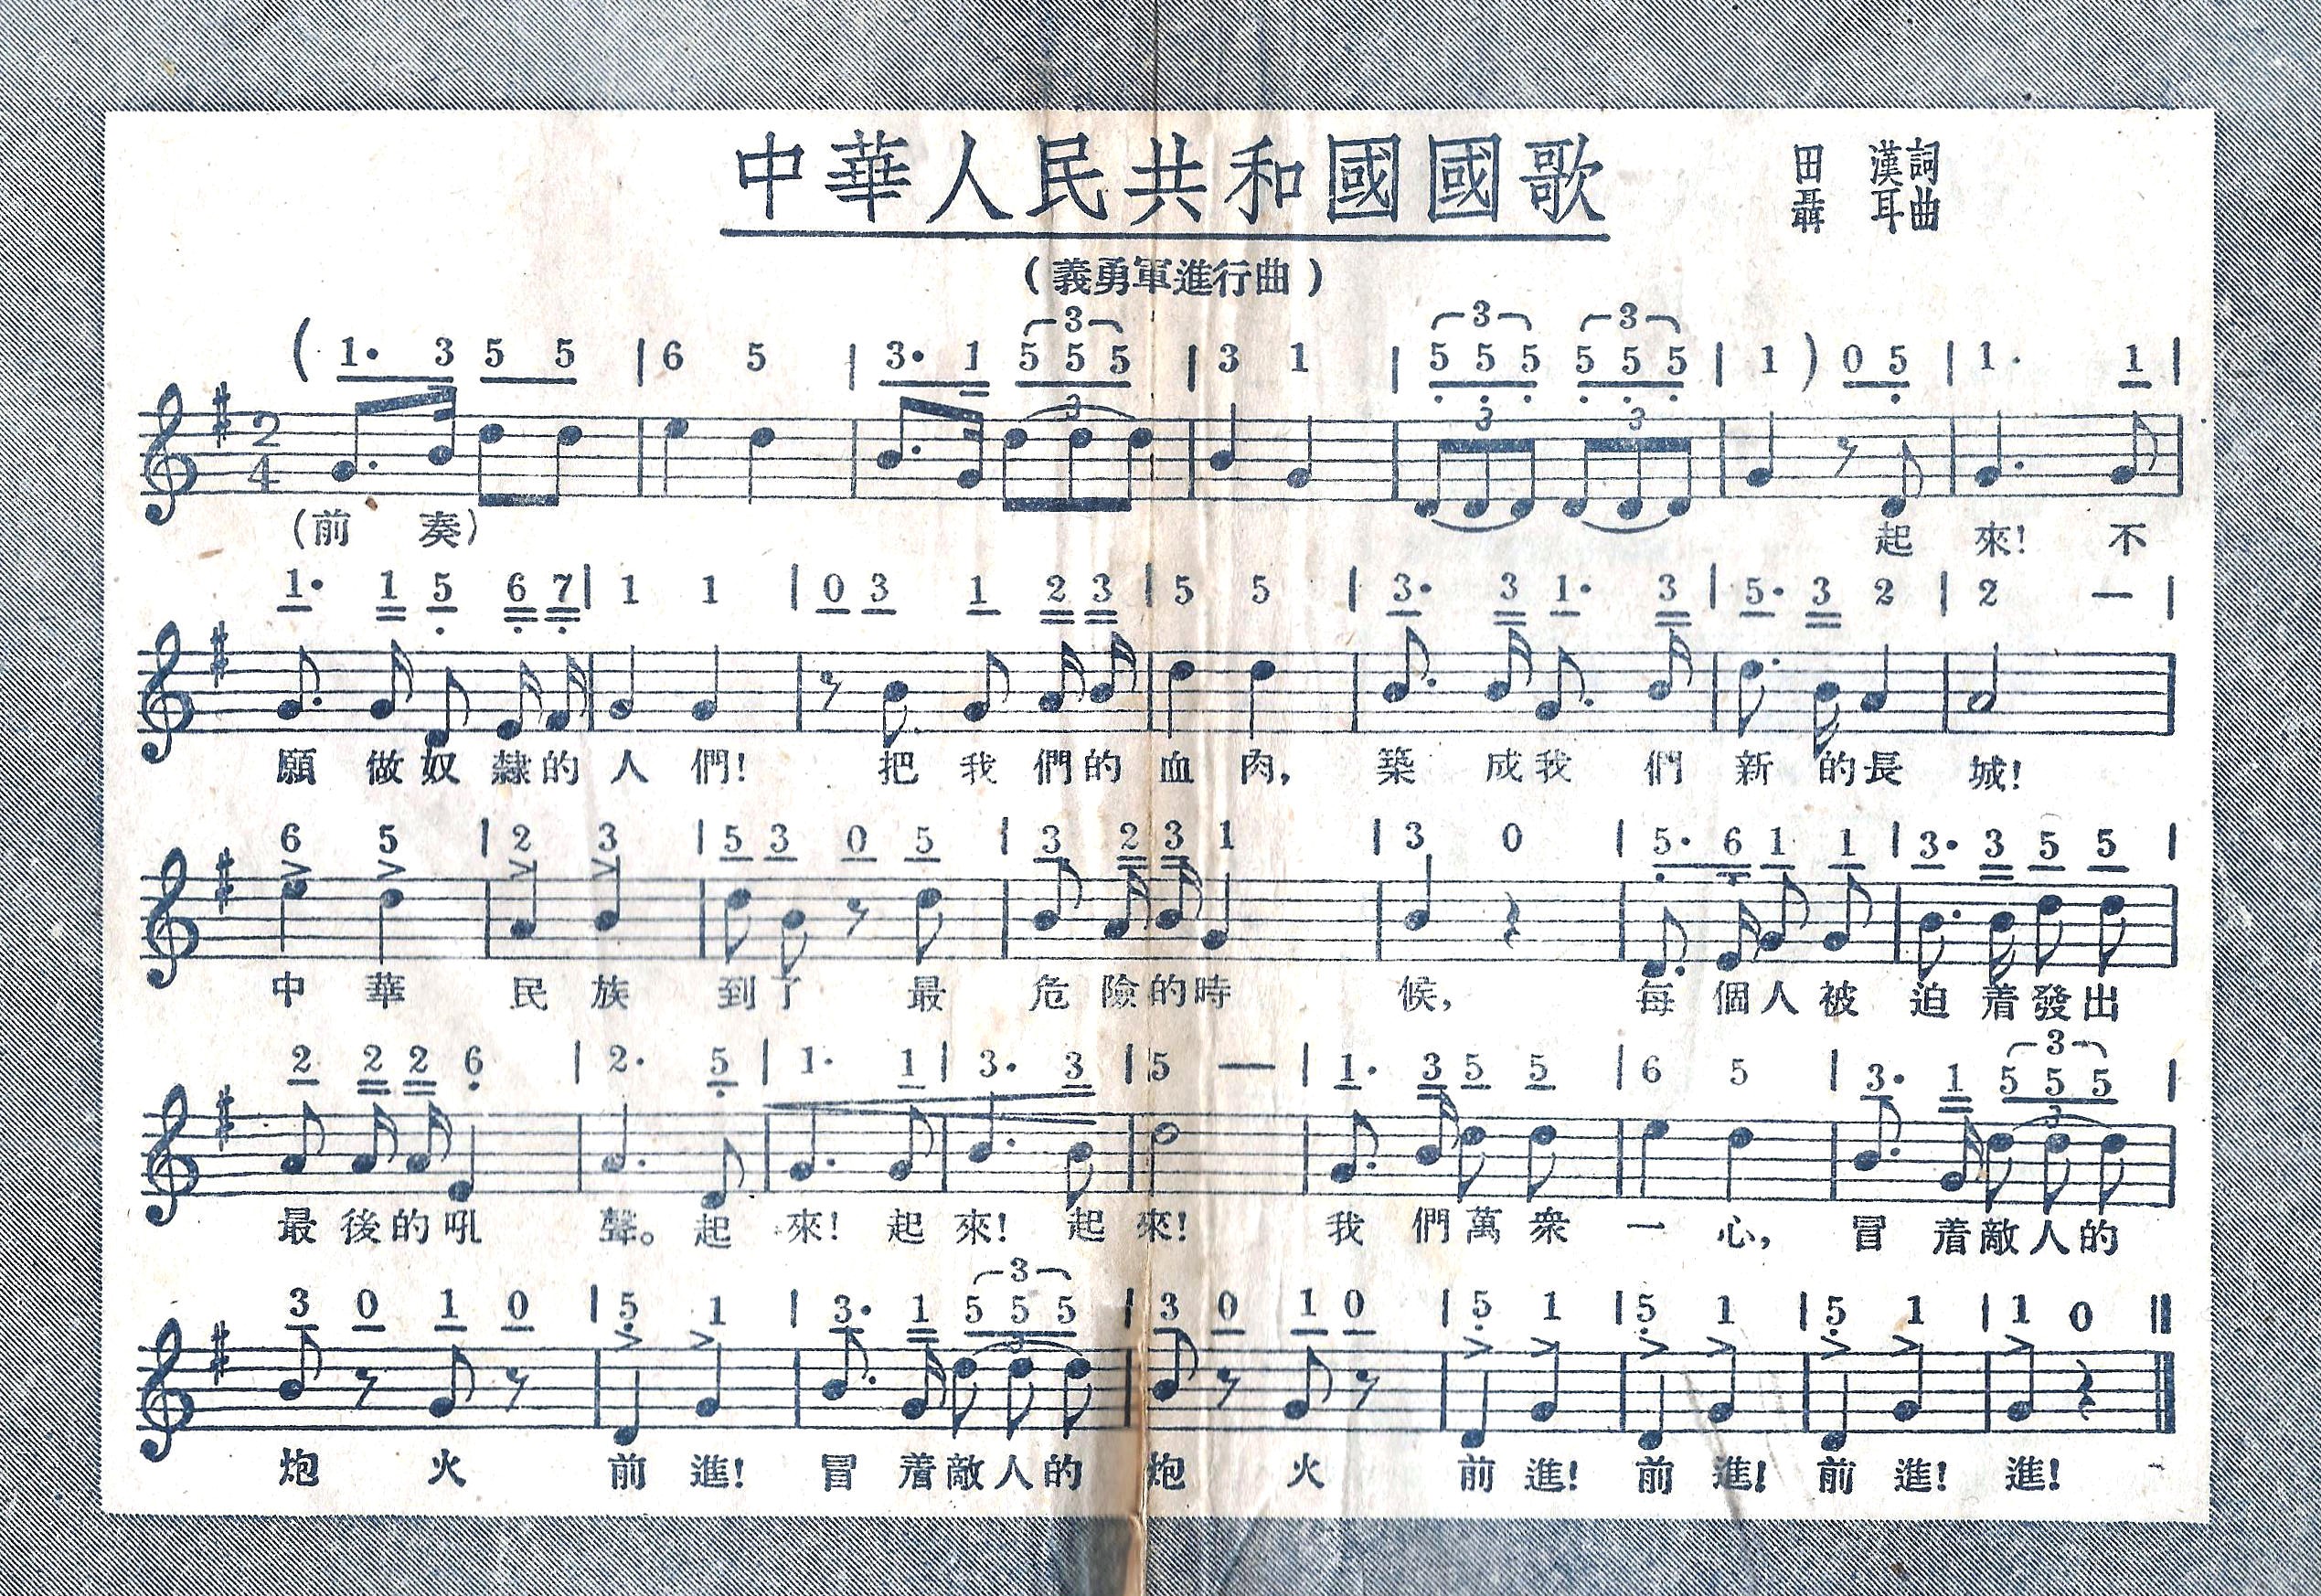 中華人民共和國國歌
田 漢詞
聶 耳曲
(義勇軍進行曲)
(1· 3 5 5 | 6 5 | 3· 1 5 5 5 | 3 1 | 5 5 5 5 5 5 | 1 ) 0 5 | 1· 1 |
(前 奏) 起 來! 不
1· 1 5 6 7 | 1 1 | 0 3 1 2 3 | 5 5 | 3· 3 1· 3 | 5· 3 2 | 2 — |
願 做 奴 隸 的 人 們! 把 我 們 的 血 肉, 築 成 我 們 新 的 長 城!
6 5 | 2 3 | 5 3 0 5 | 3 2 3 1 | 3 0 | 5· 6 1 1 | 3· 3 5 5 |
中 華 民 族 到 了 最 危 險 的 時 候, 每 個 人 被 迫 着 發 出
2 2 2 6 | 2· 5 | 1· 1 | 3· 3 | 5 — | 1· 3 5 5 | 6 5 | 3· 1 5 5 5 |
最 後 的 吼 聲。 起 來! 起 來! 起 來! 我 們 萬 衆 一 心, 冒 着 敵 人 的
3 0 1 0 | 5 1 | 3· 1 5 5 5 | 3 0 1 0 | 5 1 | 5 1 | 5 1 | 1 0 ‖
炮 火 前 進! 冒 着 敵 人 的 炮 火 前 進! 前 進! 前 進! 進!